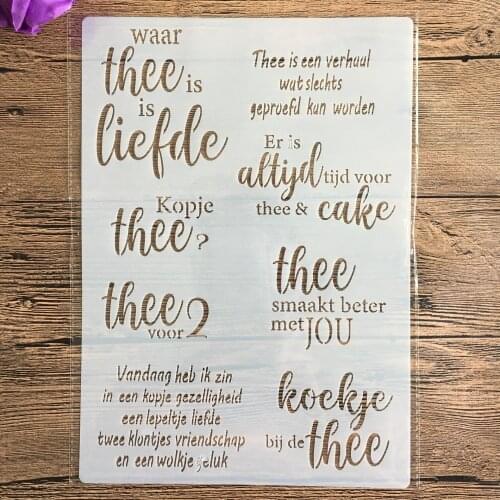 waar
thee is
is
liefde
Thee is een verhaal
wat slechts
geproefd kan worden
Er is
altyd tijd voor
thee & cake
Kopje
thee?
thee
smaakt beter
met JOU
thee
voor 2
Vandaag heb ik zin
in een kopje gezelligheid
een lepeltje liefde
twee klontjes vriendschap
en een wolkje geluk
koekje
bij de thee